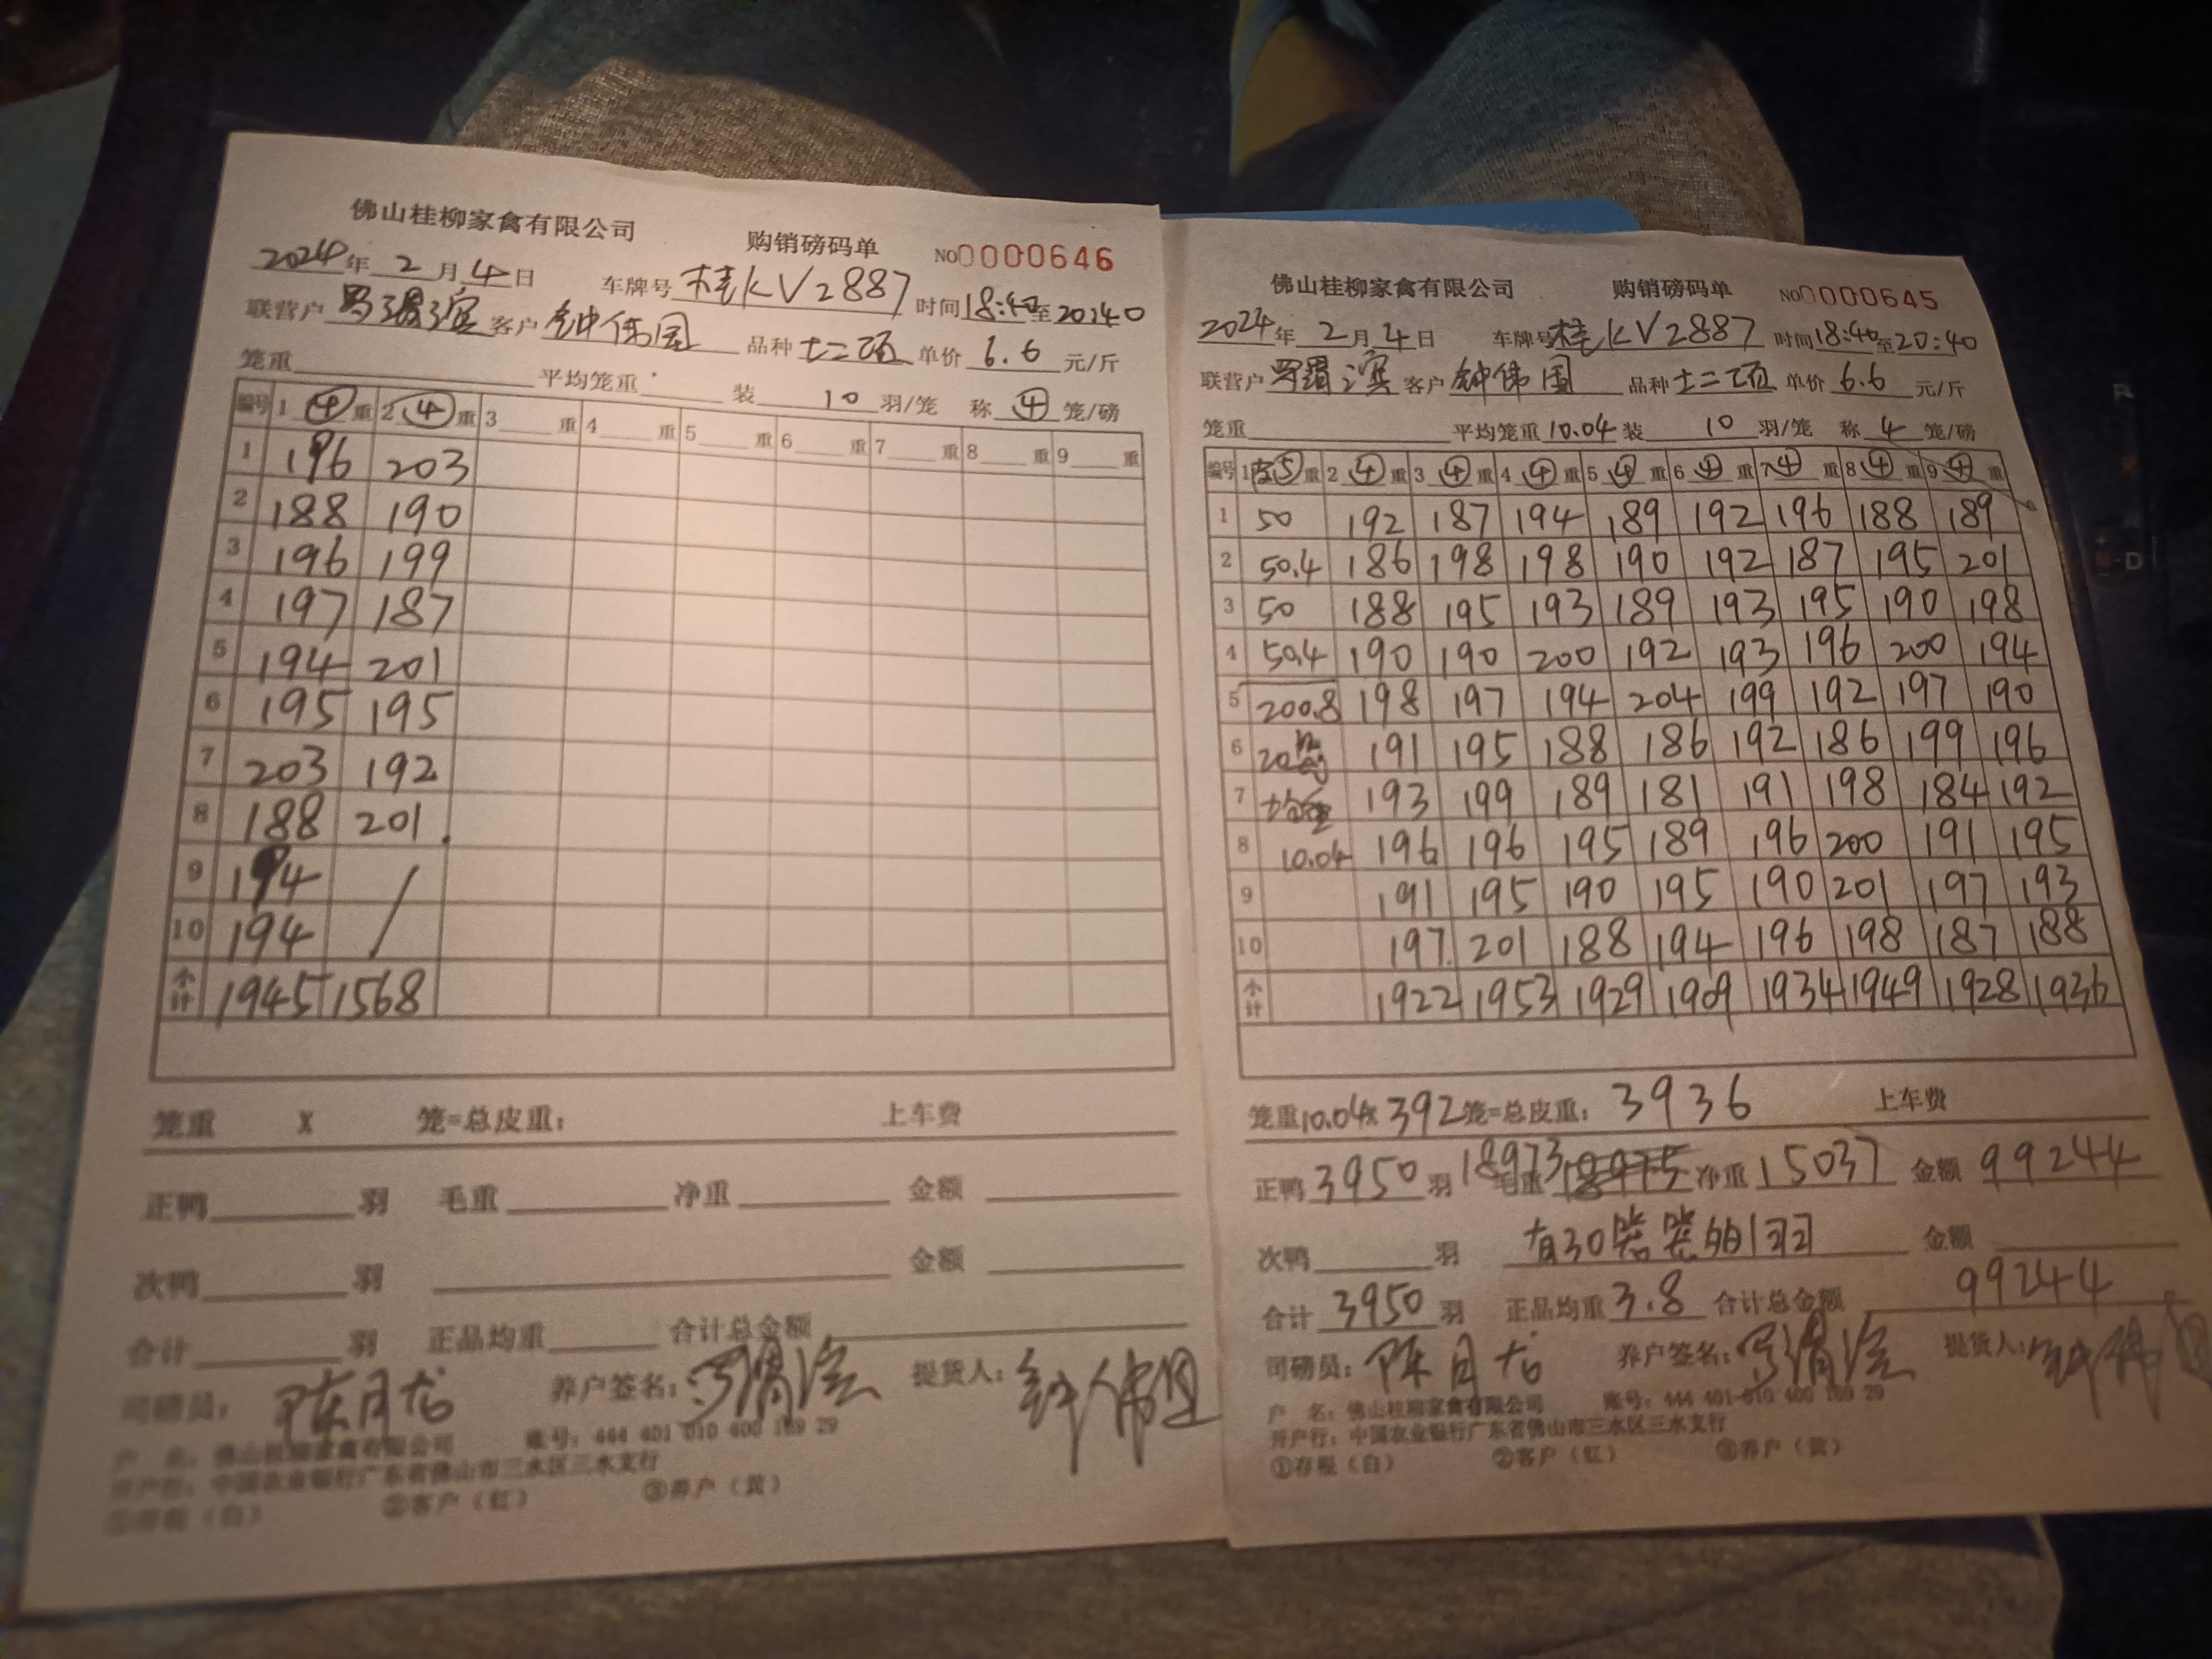 佛山桂柳家禽有限公司 购销磅码单 NO0000646
2024年2月4日 车牌号 桂KV2887 时间18:40至20:40
联营户 罗渭滨 客户 钟伟国 品种 单价 6.6 元/斤
笼重 平均笼重 装 10 羽/笼 称 ④ 笼/磅
编号 1 ④ 重 2 ④ 重 3 重 4 重 5 重 6 重 7 重 8 重 9 重
1 196 203
2 188 190
3 196 199
4 197 187
5 194 201
6 195 195
7 203 192
8 188 201
9 194 /
10 194
小计 1945 1568
笼重 X 笼=总皮重: 上车费
正鸭 羽 毛重 净重 金额
次鸭 羽 金额
合计 羽 正品均重 合计总金额
司磅员: 陈月龙 养户签名: 罗渭滨 提货人: 钟伟国
户 名: 佛山桂柳家禽有限公司 账号: 444 401 010 400 169 29
开户行: 中国农业银行广东省佛山市三水区三水支行
①存根(白) ②客户(红) ③养户(黄)
佛山桂柳家禽有限公司 购销磅码单 NO0000645
2024年2月4日 车牌号 桂KV2887 时间18:40至20:40
联营户 罗渭滨 客户 钟伟国 品种 单价 6.6 元/斤
笼重 平均笼重 10.04 装 10 羽/笼 称 4 笼/磅
编号 1 ⑤ 重 2 ④ 重 3 ④ 重 4 ④ 重 5 ④ 重 6 ④ 重 7 ④ 重 8 ④ 重 9 ④ 重
1 50 192 187 194 189 192 196 188 189
2 50.4 186 198 198 190 192 187 195 201
3 50 188 195 193 189 193 195 190 198
4 50.4 190 190 200 192 193 196 200 194
5 200.8 198 197 194 204 199 192 197 190
6 20 191 195 188 186 192 186 199 196
7 193 199 189 181 191 198 184 192
8 10.04 196 196 195 189 196 200 191 195
9 191 195 190 195 190 201 197 193
10 197 201 188 194 196 198 187 188
小计 1922 1953 1929 1909 1934 1949 1928 1936
笼重10.04x 392笼=总皮重: 3936 上车费
正鸭 3950 羽 毛重 18973 净重 15037 金额 99244
次鸭 羽 有30 笼 的1羽 金额
合计 3950 羽 正品均重 3.8 合计总金额 99244
司磅员: 陈月龙 养户签名: 罗渭滨 提货人: 钟伟国
户 名: 佛山桂柳家禽有限公司 账号: 444 401 010 400 169 29
开户行: 中国农业银行广东省佛山市三水区三水支行
①存根(白) ②客户(红) ③养户(黄)